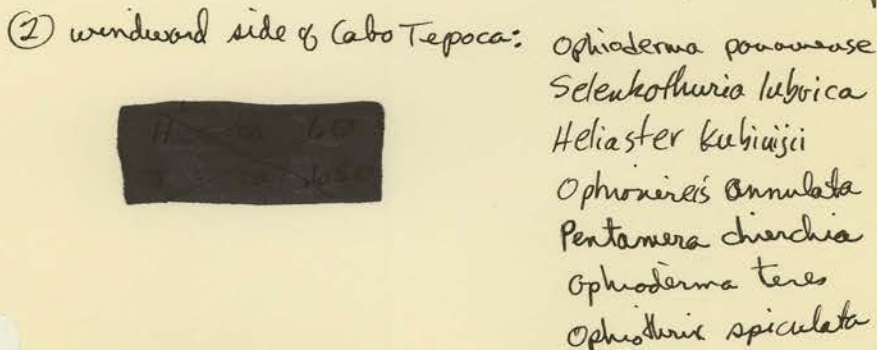 ② windward side of Cabo Tepoca:
Ophioderma panamense
Selenkothuria lubrica
Heliaster kubinijii
Ophionereis annulata
Pentamera chierchia
Ophioderma teres
Ophiothrix spiculata